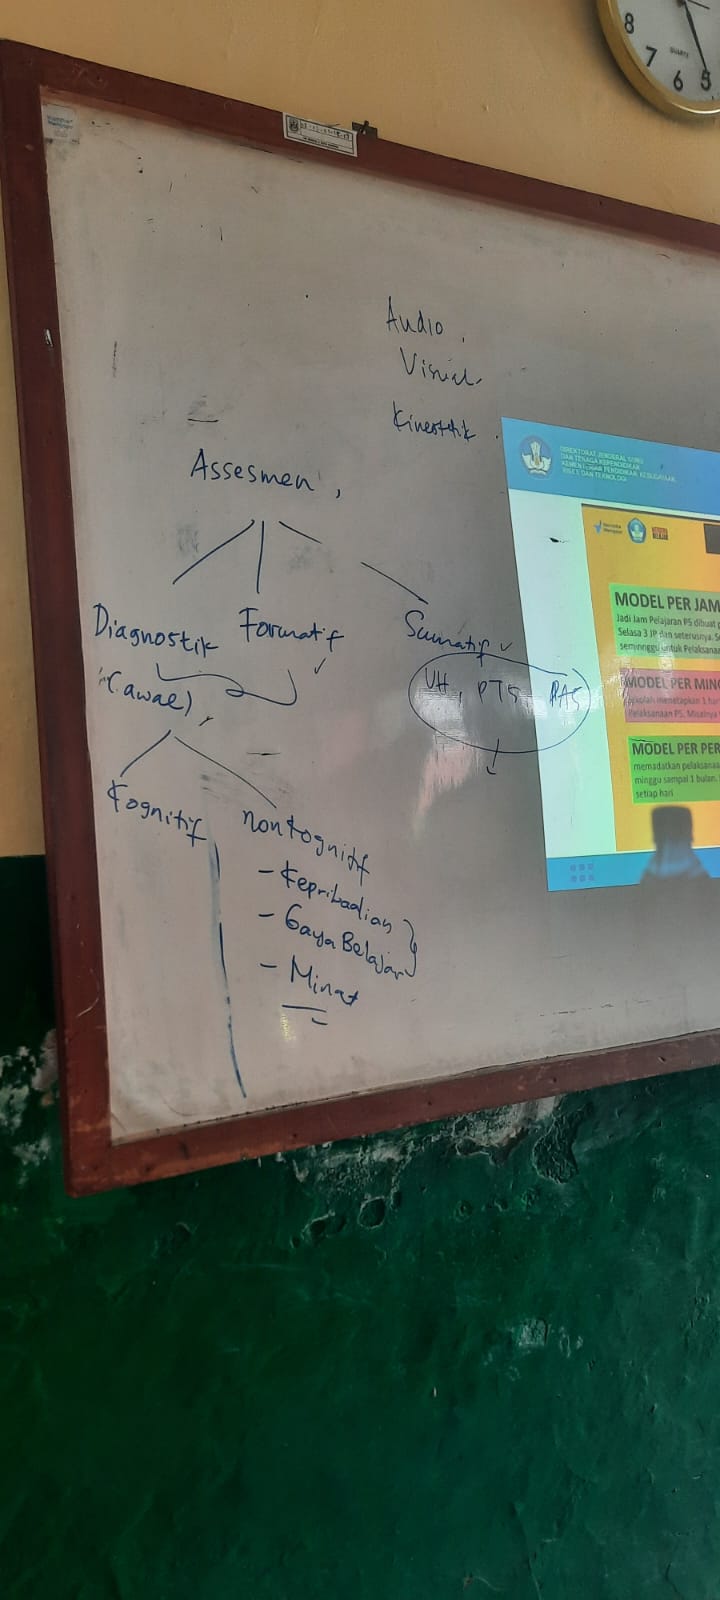 8
7
6
5
QUARTZ
Audio
Visual
Kinestetik
Assesmen,
Diagnostik
Formatif
Sumatif
(awal)
UH, PTS, PAS
Kognitif
nonkognitif
- Kepribadian
- Gaya Belajar
- Minat
DIREKTORAT JENDERAL GURU
DAN TENAGA KEPENDIDIKAN
KEMENTERIAN PENDIDIKAN, KEBUDAYAAN,
RISET, DAN TEKNOLOGI
MODEL PER JAM
Jadi Jam Pelajaran P5 dibuat p
Selasa 3 JP dan seterusnya. S
seminnggu untuk Pelaksana
MODEL PER MING
Sekolah menetapkan 1 har
Pelaksanaan P5. Misalnya
MODEL PER PER
memadatkan pelaksana
minggu sampai 1 bulan.
setiap hari